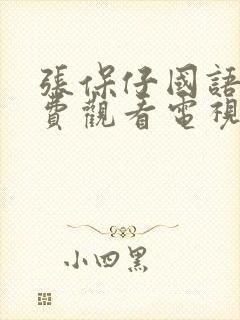 張保仔國語
費觀看電視
小四黑